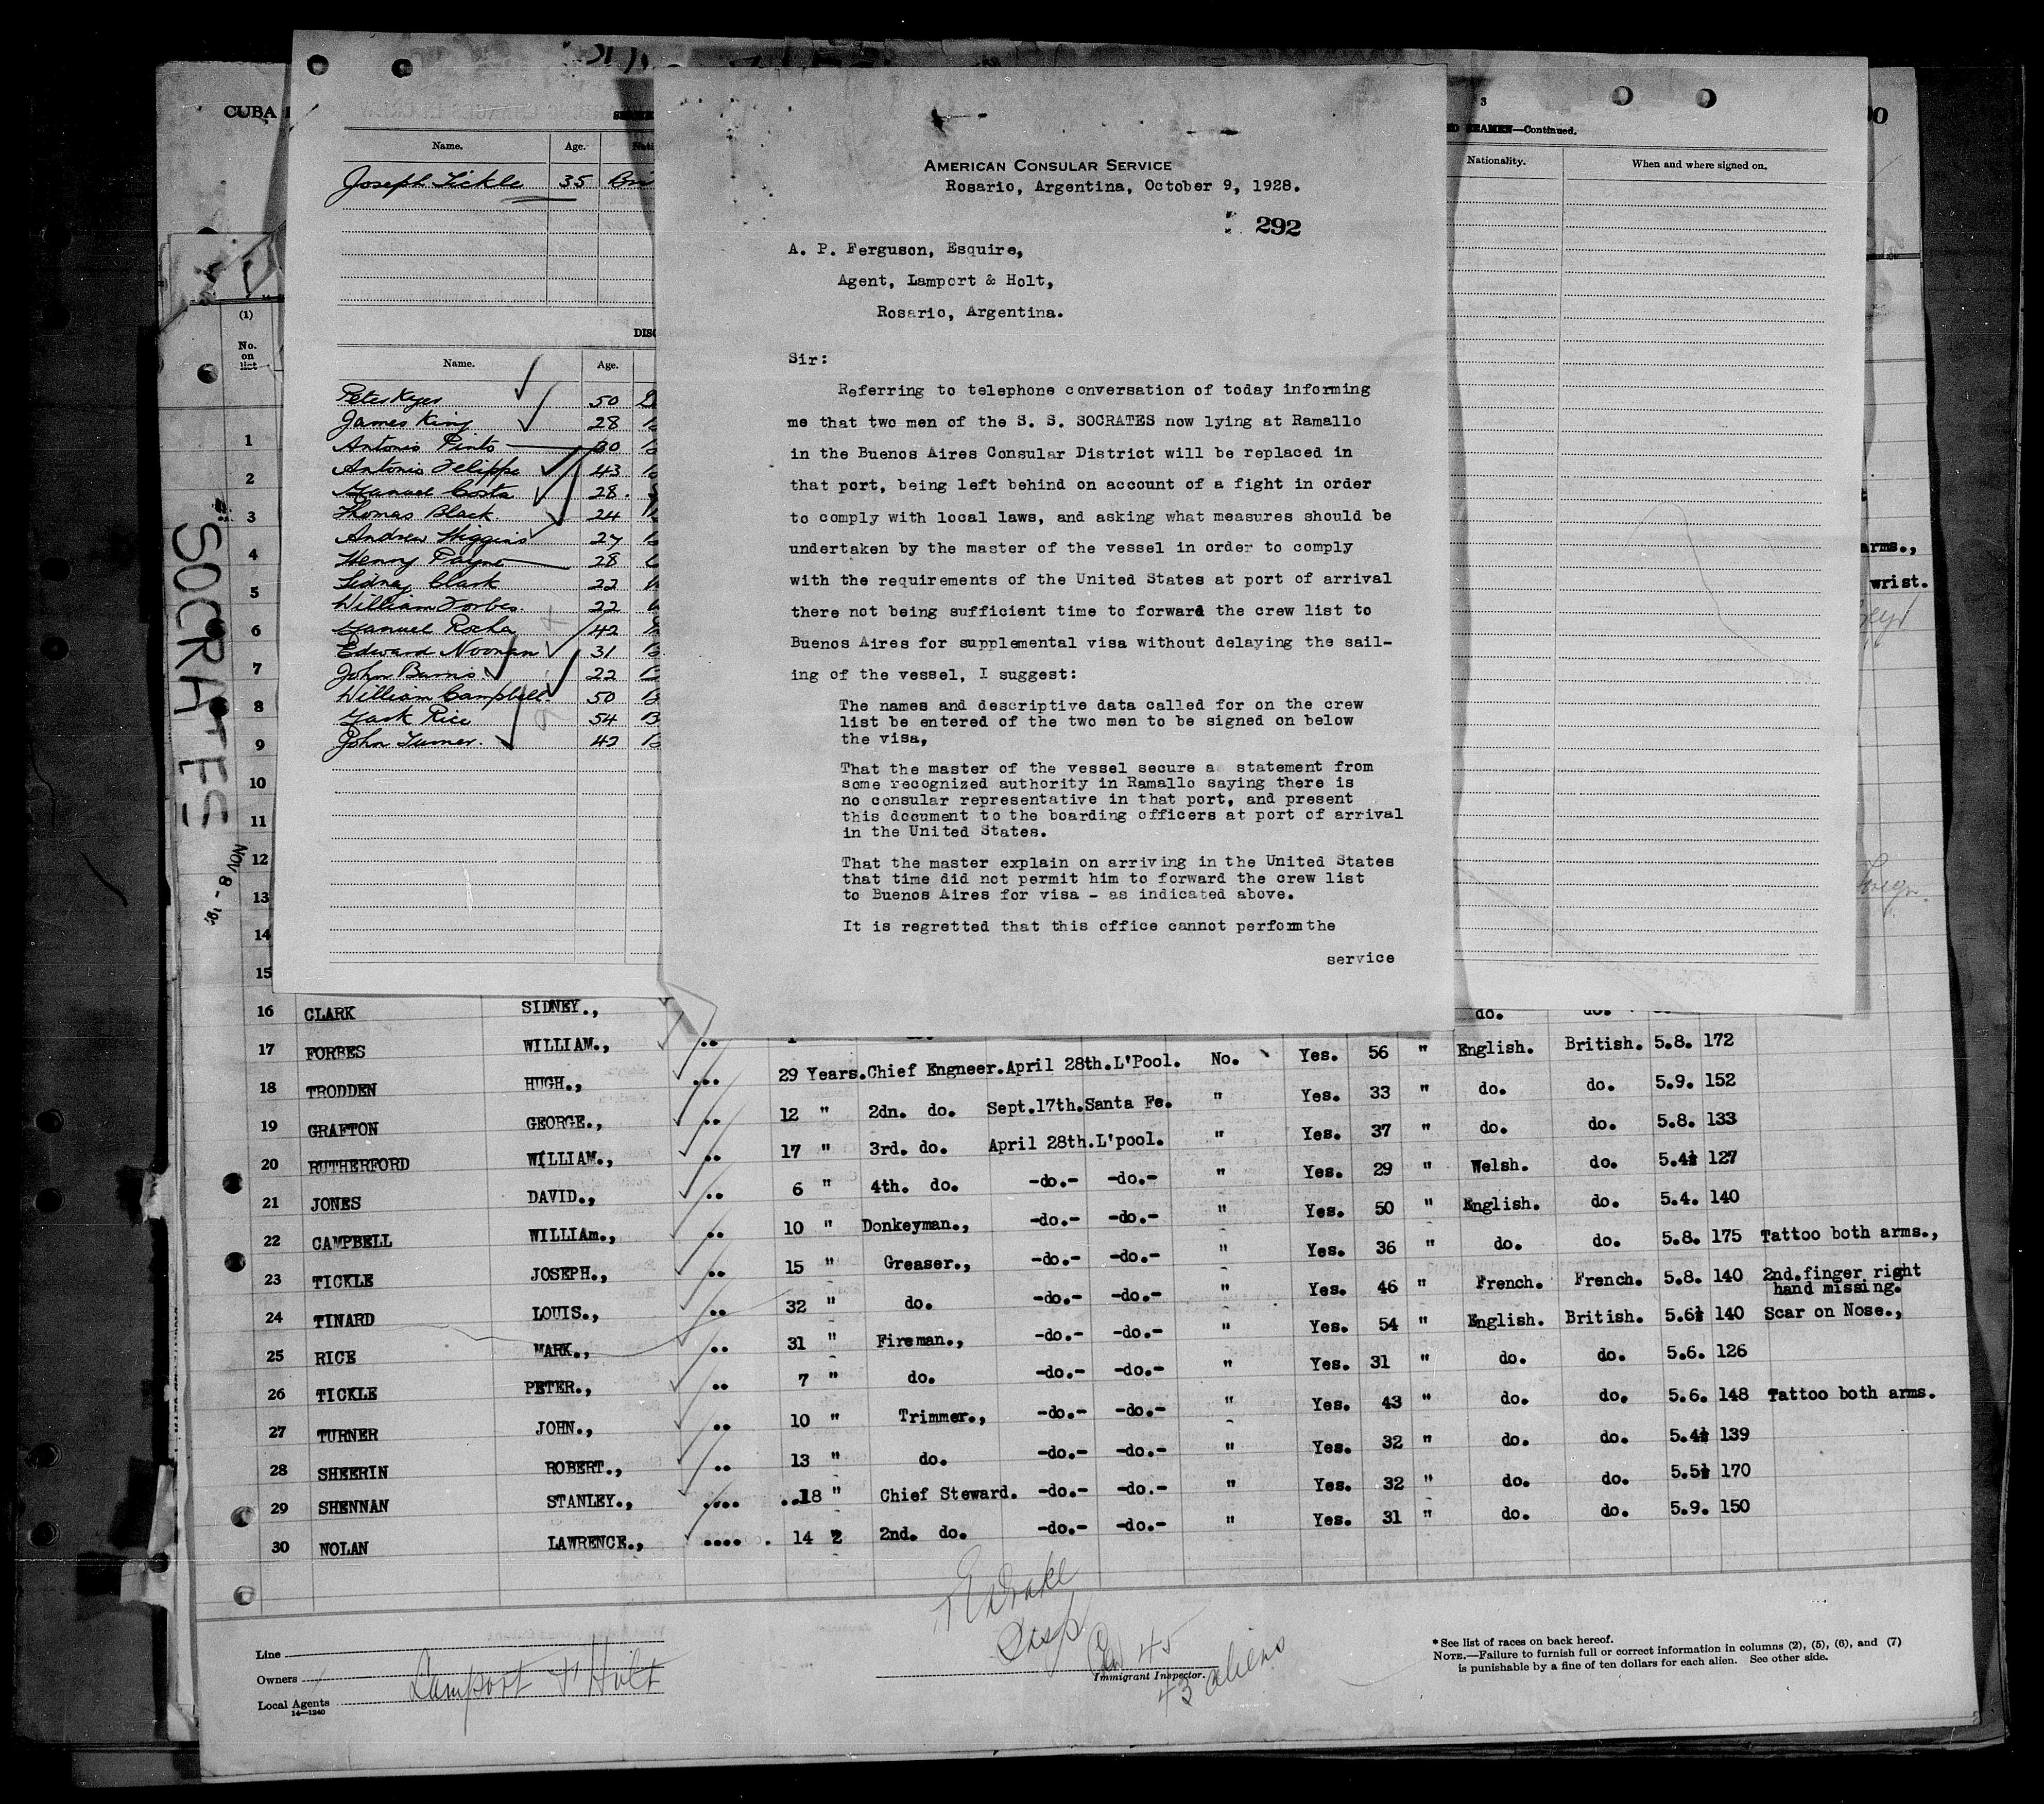 CUBA
3
SEAMEN—Continued.
Name. Age.
Joseph Tickle 35
Nationality. When and where signed on.
AMERICAN CONSULAR SERVICE
Rosario, Argentina, October 9, 1928.
292
A. P. Ferguson, Esquire,
Agent, Lamport & Holt,
Rosario, Argentina.
Sir:
Referring to telephone conversation of today informing
me that two men of the S. S. SOCRATES now lying at Ramallo
in the Buenos Aires Consular District will be replaced in
that port, being left behind on account of a fight in order
to comply with local laws, and asking what measures should be
undertaken by the master of the vessel in order to comply
with the requirements of the United States at port of arrival
there not being sufficient time to forward the crew list to
Buenos Aires for supplemental visa without delaying the sail-
ing of the vessel, I suggest:
The names and descriptive data called for on the crew
list be entered of the two men to be signed on below
the visa,
That the master of the vessel secure a statement from
some recognized authority in Ramallo saying there is
no consular representative in that port, and present
this document to the boarding officers at port of arrival
in the United States.
That the master explain on arriving in the United States
that time did not permit him to forward the crew list
to Buenos Aires for visa - as indicated above.
It is regretted that this office cannot perform the
service
Name. Age.
Peter Kayes 50
James King 28
Antonio Pinto 30
Antonio Felippe 43
Manuel Costa 28.
Thomas Black. 24
Andrew Higgins 27
Henry Payne 28
Sidney Clark 22
William Forbes. 22
Manuel Rocha 42
Edward Noonan 31
John Burns. 22
William Campbell. 50
Mark Rice 54
John Turner. 42
SOCRATES
NOV 8 -
(1)
No.
on
list
1
2
3
4
5
6
7
8
9
10
11
12
13
14
15
arms.,
wrist.
16 CLARK SIDNEY., do. do.
17 FORBES WILLIAM.,
18 TRODDEN HUGH., 29 Years. Chief Engneer. April 28th. L'Pool. No. Yes. 56 " English. British. 5.8. 172
19 GRAFTON GEORGE., 12 " 2dn. do. Sept.17th. Santa Fe. " Yes. 33 " do. do. 5.9. 152
20 RUTHERFORD WILLIAM., 17 " 3rd. do. April 28th. L'pool. " Yes. 37 " do. do. 5.8. 133
21 JONES DAVID., 6 " 4th. do. -do.- -do.- " Yes. 29 " Welsh. do. 5.4½ 127
22 CAMPBELL WILLIAm., 10 " Donkeyman., -do.- -do.- " Yes. 50 " English. do. 5.4. 140
23 TICKLE JOSEPH., 15 " Greaser., -do.- -do.- " Yes. 36 " do. do. 5.8. 175 Tattoo both arms.,
24 TINARD LOUIS., 32 " do. -do.- -do.- " Yes. 46 " French. French. 5.8. 140 2nd. finger right
hand missing.
25 RICE MARK., 31 " Fireman., -do.- -do.- " Yes. 54 " English. British. 5.6½ 140 Scar on Nose.,
26 TICKLE PETER., 7 " do. -do.- -do.- " Yes. 31 " do. do. 5.6. 126
27 TURNER JOHN., 10 " Trimmer., -do.- -do.- " Yes. 43 " do. do. 5.6. 148 Tattoo both arms.
28 SHEERIN ROBERT., 13 " do. -do.- -do.- " Yes. 32 " do. do. 5.4½ 139
29 SHENNAN STANLEY., 18 " Chief Steward. -do.- -do.- " Yes. 32 " do. do. 5.5½ 170
30 NOLAN LAWRENCE., 14 2 2nd. do. -do.- -do.- " Yes. 31 " do. do. 5.9. 150
Drake
Insp
45
43 aliens
Immigrant Inspector.
Line
Owners Lamport & Holt
Local Agents
14—1240
* See list of races on back hereof.
NOTE.—Failure to furnish full or correct information in columns (2), (5), (6), and (7)
is punishable by a fine of ten dollars for each alien. See other side.